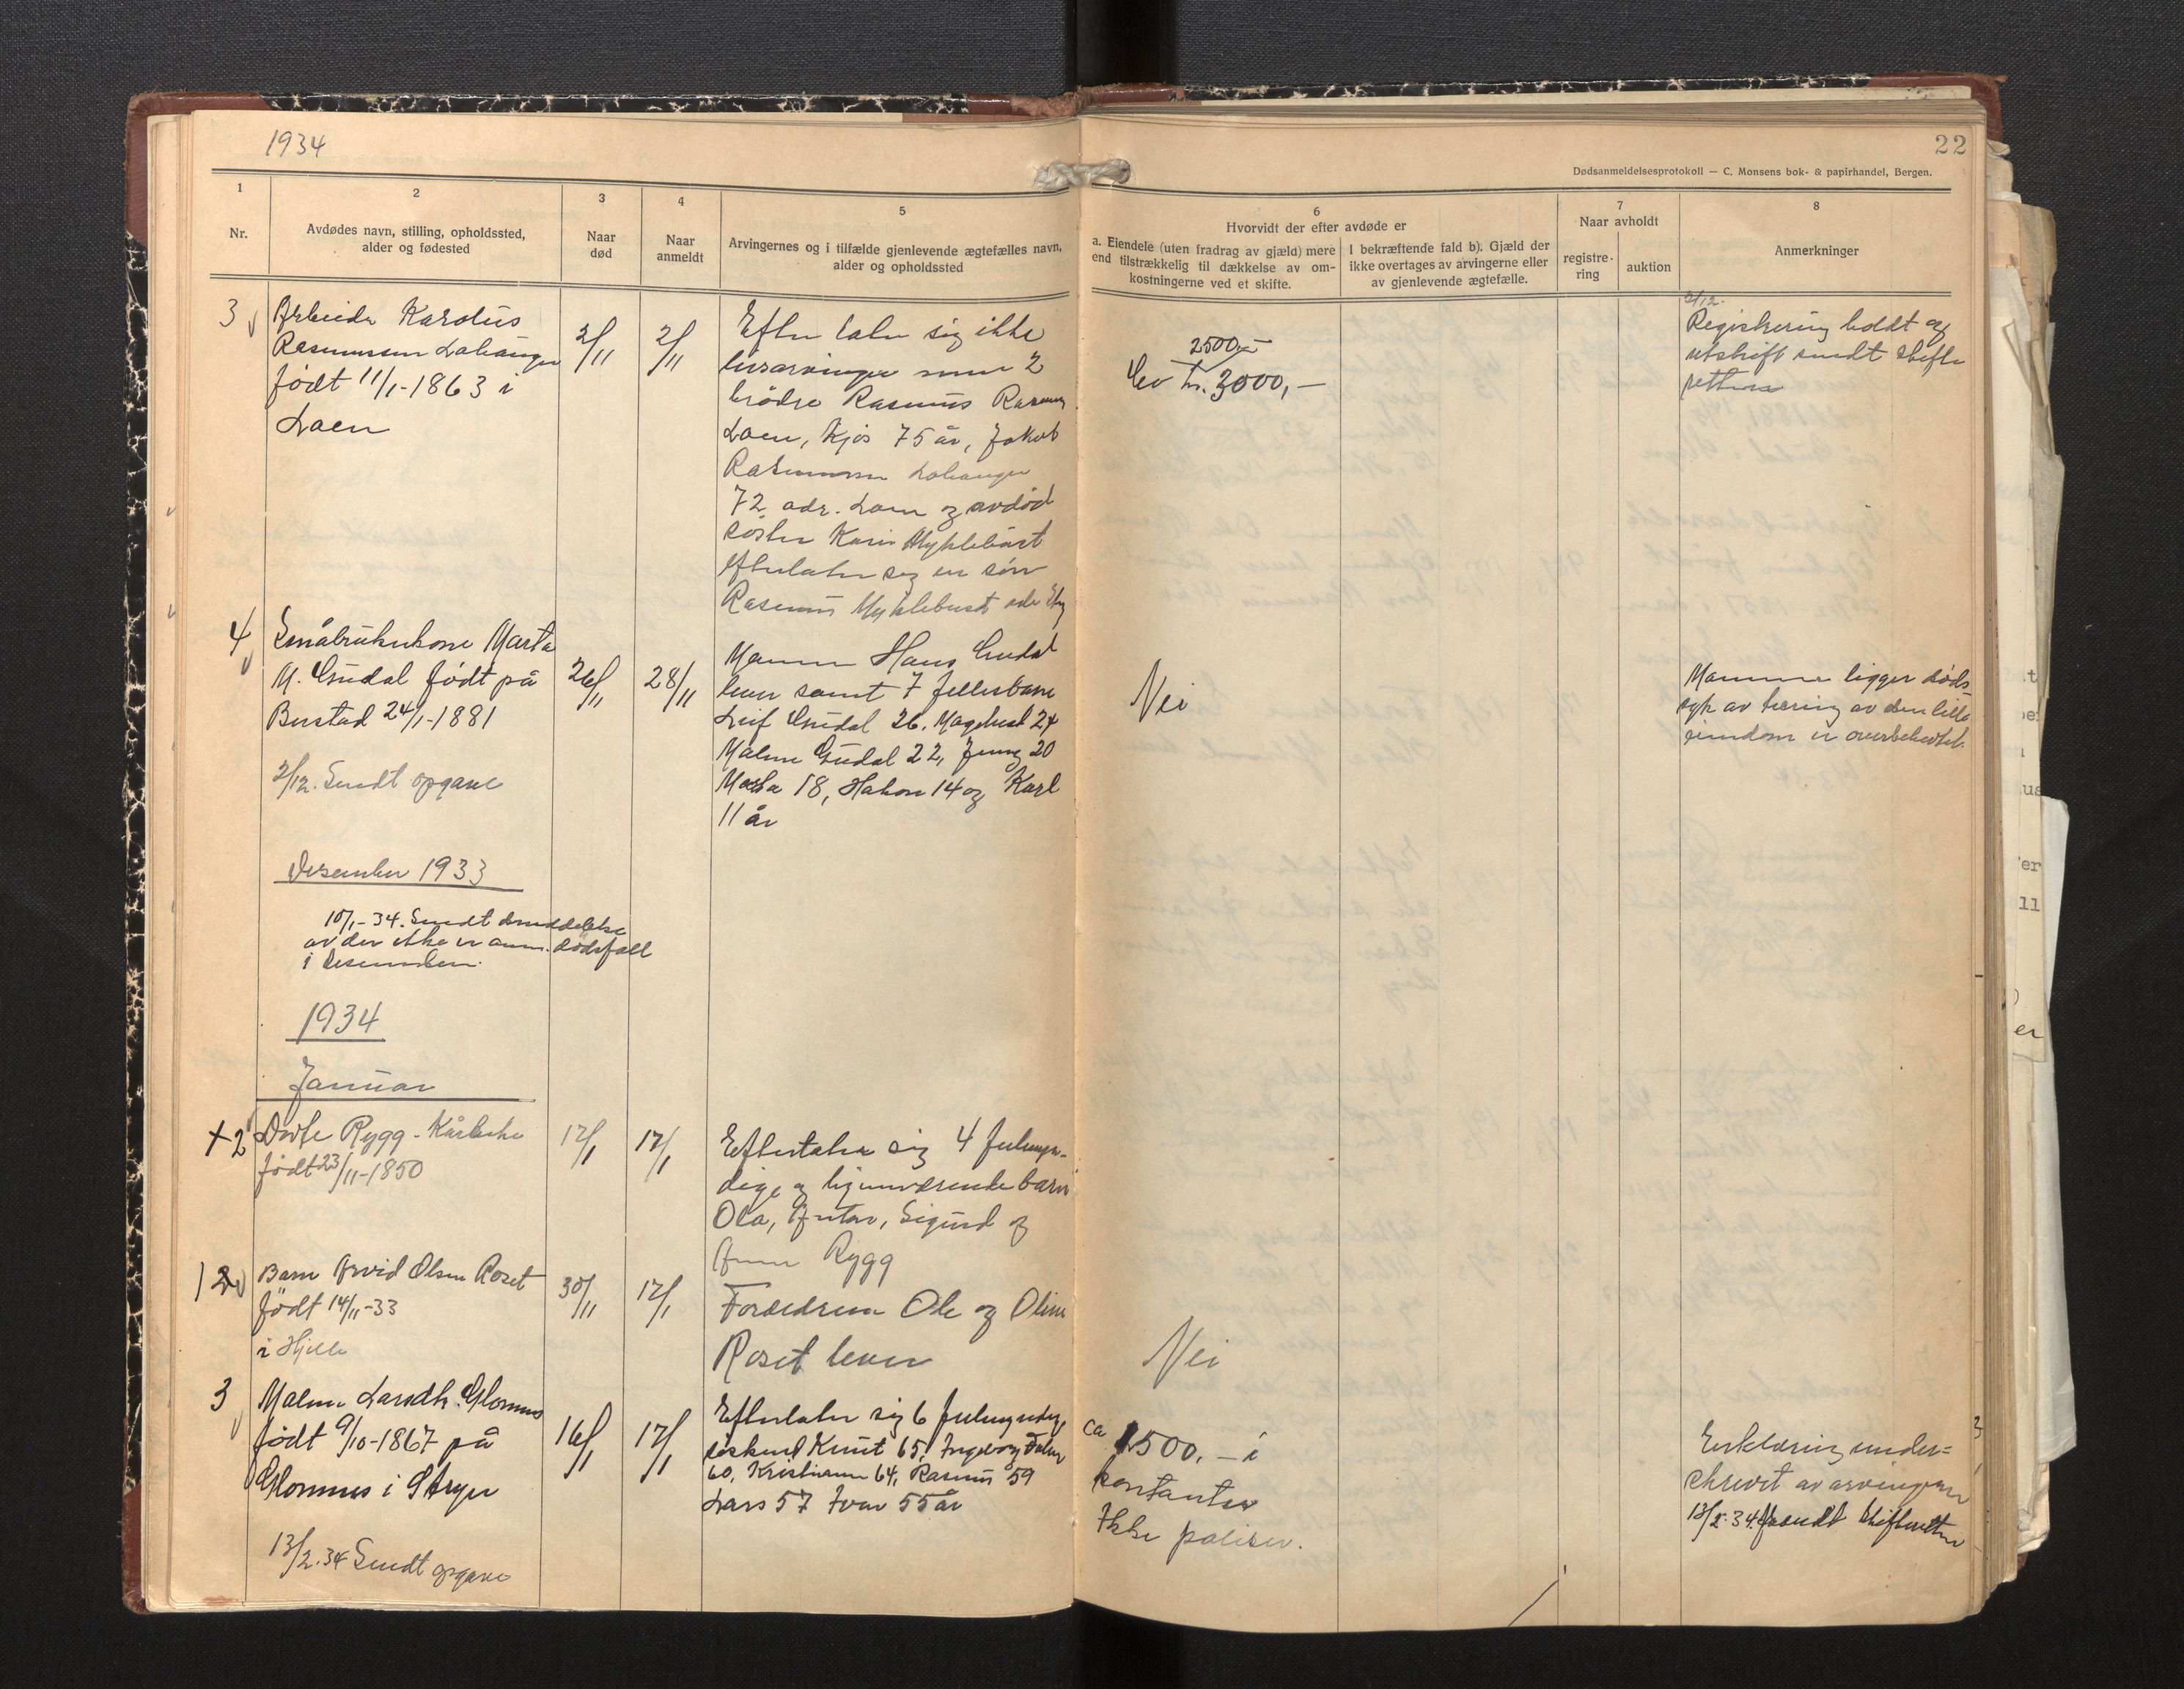 1934
22
Dødsanmeldelsesprotokoll — C. Monsens bok- & papirhandel, Bergen.
1
Nr.
2
Avdødes navn, stilling, opholdssted,
alder og fødested
3
Naar
død
4
Naar
anmeldt
5
Arvingernes og i tilfælde gjenlevende ægtefælles navn,
alder og opholdssted
6
Hvorvidt der efter avdøde er
a. Eiendele (uten fradrag av gjæld) mere
end tilstrækkelig til dækkelse av om-
kostningerne ved et skifte.
I bekræftende fald b). Gjæld der
ikke overtages av arvingerne eller
av gjenlevende ægtefælle.
7
Naar avholdt
registre-
ring
auktion
8
Anmerkninger
3
Arbeider Karolus
Rasmussen Lohanger
født 11/1-1863 i
Loen
2/11
2/11
Efter later sig ikke
livsarvinger men 2
brødre Rasmus Rasmus
Loen, Kjøs 75 år, Jakob
Rasmussen Lohanger
72 adr. Loen og avdød
søster Kari Myklebust
efterlater sig en søn
Rasmus Myklebust
2500,-
kr. 3000,-
2/12-
Registrering holdt og
utskrift sendt skifte
retten
4
Småbrukerkone Marta
M. Gudal født på
Bustad 24/1-1881
2/12. Sendt opgave
26/11
28/11
Mannen Hans Gudal
lever samt 7 fellesbarn
Leif Gudal 26, Magnhild 24
Malene Gudal 22, Jenny 20
Marta 18, Håkon 14 og Karl
11 år
Nei
Mannen ligger døds-
syk av tæring av den lille
eiendom er overbeheftet.
Desember 1933
10/1-34. Sendt
av der ikke er anm. dødsfall
i desember.
1934
Januar
+2
Dorte Rygg - Kårenke
født 23/11-1850
12/1
17/1
Efterlater sig 4 fulmyn-
dige og hjemværende barn
Ola, Gustav, Sigurd og
Anna Rygg
1
Barn Arvid Olsen Roset
født 14/11-33
i Hjelle
30/11
17/1
Foreldrene Ole og Oline
Roset lever
Nei
3
Malene Larsdtr. Glomnes
født 9/10-1867 på
Glomnes i Stryn
13/2.34 Sendt opgave
16/1
17/1
Efterlater sig 6 fulmyndige
søskend Knut 65, Ingeborg
60, Kristianne 64, Rasmus 59
Lars 57 Ivar 55 år
ca 1500,- i
kontanter
Ikke poliser.
Erklæring under=
skrevet av arvingene
13/2.34 sendt skifteretten